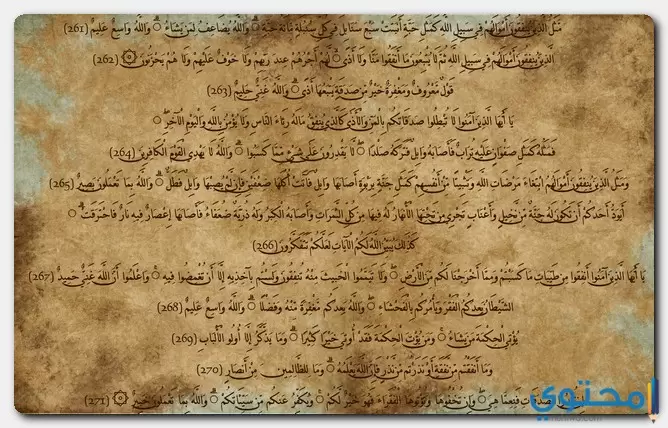 مَثَلُ الَّذِينَ يُنفِقُونَ أَمْوَالَهُمْ فِي سَبِيلِ اللَّهِ كَمَثَلِ حَبَّةٍ أَنبَتَتْ سَبْعَ سَنَابِلَ فِي كُلِّ سُنبُلَةٍ مِّائَةُ حَبَّةٍ ۗ وَاللَّهُ يُضَاعِفُ لِمَن يَشَاءُ ۗ وَاللَّهُ وَاسِعٌ عَلِيمٌ (261)
الَّذِينَ يُنفِقُونَ أَمْوَالَهُمْ فِي سَبِيلِ اللَّهِ ثُمَّ لَا يُتْبِعُونَ مَا أَنفَقُوا مَنًّا وَلَا أَذًى ۙ لَّهُمْ أَجْرُهُمْ عِندَ رَبِّهِمْ وَلَا خَوْفٌ عَلَيْهِمْ وَلَا هُمْ يَحْزَنُونَ ۞ (262)
قَوْلٌ مَّعْرُوفٌ وَمَغْفِرَةٌ خَيْرٌ مِّن صَدَقَةٍ يَتْبَعُهَا أَذًى ۗ وَاللَّهُ غَنِيٌّ حَلِيمٌ (263)
يَا أَيُّهَا الَّذِينَ آمَنُوا لَا تُبْطِلُوا صَدَقَاتِكُم بِالْمَنِّ وَالْأَذَىٰ كَالَّذِي يُنفِقُ مَالَهُ رِئَاءَ النَّاسِ وَلَا يُؤْمِنُ بِاللَّهِ وَالْيَوْمِ الْآخِرِ ۖ
فَمَثَلُهُ كَمَثَلِ صَفْوَانٍ عَلَيْهِ تُرَابٌ فَأَصَابَهُ وَابِلٌ فَتَرَكَهُ صَلْدًا ۖ لَّا يَقْدِرُونَ عَلَىٰ شَيْءٍ مِّمَّا كَسَبُوا ۗ وَاللَّهُ لَا يَهْدِي الْقَوْمَ الْكَافِرِينَ (264)
وَمَثَلُ الَّذِينَ يُنفِقُونَ أَمْوَالَهُمُ ابْتِغَاءَ مَرْضَاتِ اللَّهِ وَتَثْبِيتًا مِّنْ أَنفُسِهِمْ كَمَثَلِ جَنَّةٍ بِرَبْوَةٍ أَصَابَهَا وَابِلٌ فَآتَتْ أُكُلَهَا ضِعْفَيْنِ فَإِن لَّمْ يُصِبْهَا وَابِلٌ فَطَلٌّ ۗ وَاللَّهُ بِمَا تَعْمَلُونَ بَصِيرٌ (265)
أَيَوَدُّ أَحَدُكُمْ أَن تَكُونَ لَهُ جَنَّةٌ مِّن نَّخِيلٍ وَأَعْنَابٍ تَجْرِي مِن تَحْتِهَا الْأَنْهَارُ لَهُ فِيهَا مِن كُلِّ الثَّمَرَاتِ وَأَصَابَهُ الْكِبَرُ وَلَهُ ذُرِّيَّةٌ ضُعَفَاءُ فَأَصَابَهَا إِعْصَارٌ فِيهِ نَارٌ فَاحْتَرَقَتْ ۗ
كَذَٰلِكَ يُبَيِّنُ اللَّهُ لَكُمُ الْآيَاتِ لَعَلَّكُمْ تَتَفَكَّرُونَ (266)
يَا أَيُّهَا الَّذِينَ آمَنُوا أَنفِقُوا مِن طَيِّبَاتِ مَا كَسَبْتُمْ وَمِمَّا أَخْرَجْنَا لَكُم مِّنَ الْأَرْضِ ۖ وَلَا تَيَمَّمُوا الْخَبِيثَ مِنْهُ تُنفِقُونَ وَلَسْتُم بِآخِذِيهِ إِلَّا أَن تُغْمِضُوا فِيهِ ۚ وَاعْلَمُوا أَنَّ اللَّهَ غَنِيٌّ حَمِيدٌ (267)
الشَّيْطَانُ يَعِدُكُمُ الْفَقْرَ وَيَأْمُرُكُم بِالْفَحْشَاءِ ۖ وَاللَّهُ يَعِدُكُم مَّغْفِرَةً مِّنْهُ وَفَضْلًا ۗ وَاللَّهُ وَاسِعٌ عَلِيمٌ (268)
يُؤْتِي الْحِكْمَةَ مَن يَشَاءُ ۚ وَمَن يُؤْتَ الْحِكْمَةَ فَقَدْ أُوتِيَ خَيْرًا كَثِيرًا ۗ وَمَا يَذَّكَّرُ إِلَّا أُولُو الْأَلْبَابِ (269)
وَمَا أَنفَقْتُم مِّن نَّفَقَةٍ أَوْ نَذَرْتُم مِّن نَّذْرٍ فَإِنَّ اللَّهَ يَعْلَمُهُ ۗ وَمَا لِلظَّالِمِينَ مِنْ أَنصَارٍ (270)
الصَّدَقَاتِ فَنِعِمَّا هِيَ ۖ وَإِن تُخْفُوهَا وَتُؤْتُوهَا الْفُقَرَاءَ فَهُوَ خَيْرٌ لَّكُمْ ۚ وَيُكَفِّرُ عَنكُم مِّن سَيِّئَاتِكُمْ ۗ وَاللَّهُ بِمَا تَعْمَلُونَ خَبِيرٌ ۞ (271)
محتوى